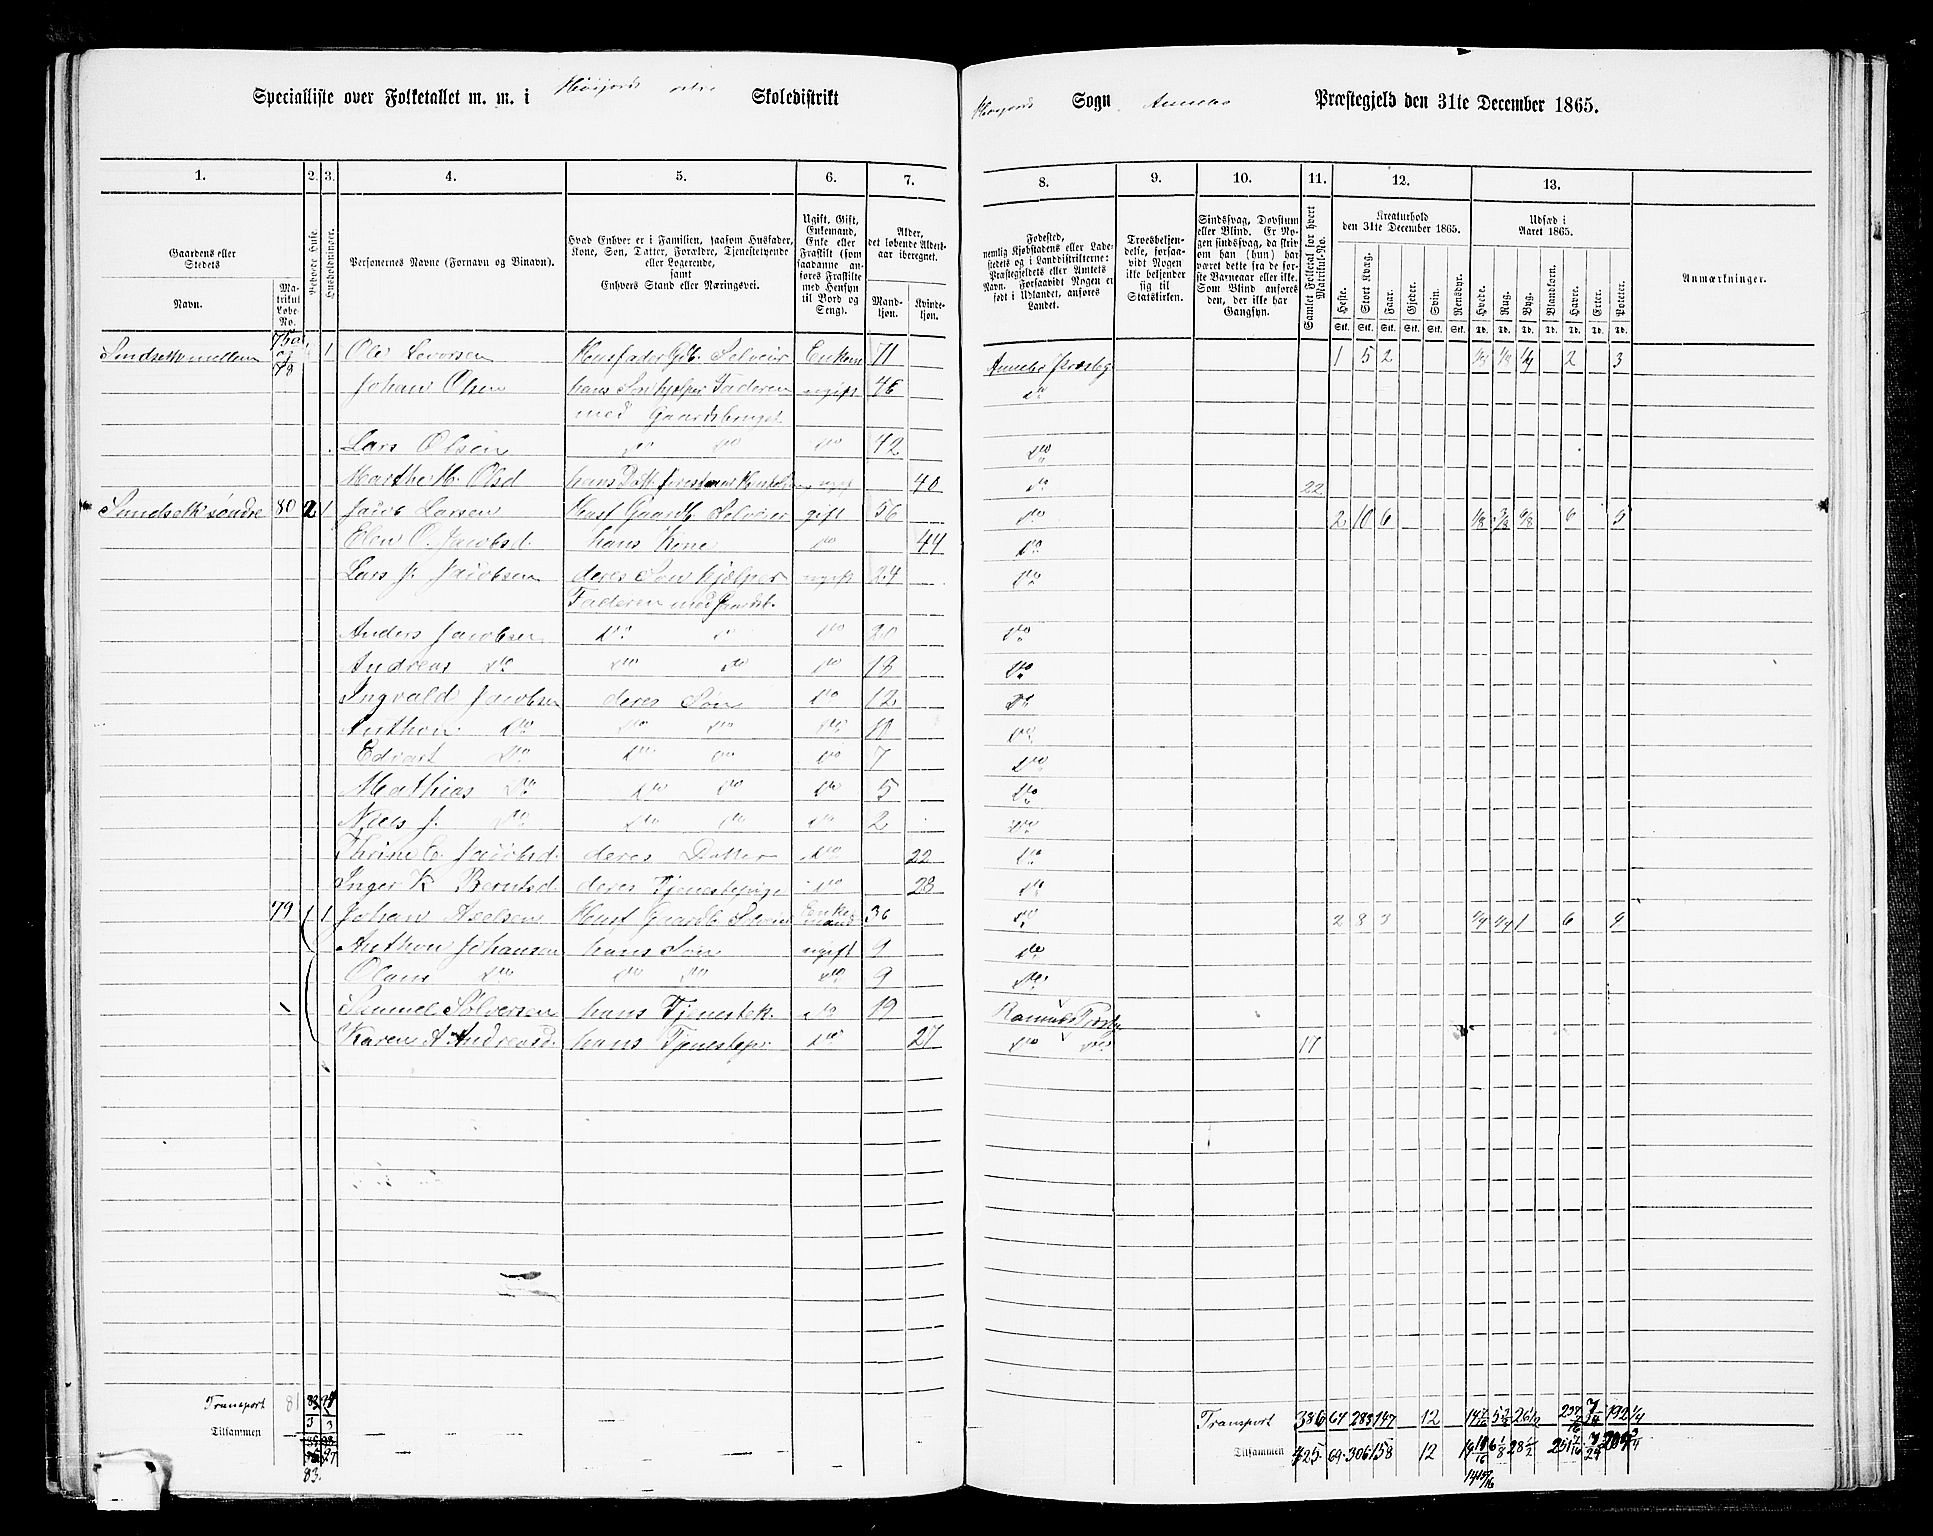 Specialliste over Folketallet m. m. i Høijord Skoledistrikt
Sogn Præstegjeld den 31te December 1865.
1. 2. 3. 4. 5. 6. 7. 8. 9. 10. 11. 12. 13.
Gaardens eller Stedets
Navn.
Matrikul Løbe-No.
Beboede Huse.
Husholdninger.
Personernes Navne (Fornavn og Binavn).
Hvad Enhver er i Familien, saasom Husfader, Kone, Søn, Datter, Forældre, Tjenestetyende eller Logerende, samt Enhvers Stand eller Næringsvei.
Ugift, Gift, Enkemand, Enke eller Fraskilt (som saadanne anføres Fraskilte med Hensyn til Bord og Seng).
Alder, det løbende Aldersaar iberegnet.
Mandkjøn. Kvindekjøn.
Fødested, nemlig Kjøbstadens eller Ladestedets og i Landdistrikterne: Præstegjeldets eller Amtets Navn. Forsaavidt Nogen er født i Udlandet, anføres Landet.
Troesbekjendelse, forsaavidt Nogen ikke bekjender sig til Statskirken.
Sindssvag, Døvstum eller Blind. Er Nogen sindssvag, da skriv om han (hun) har været dette fra de første Barneaar eller ikke. Som Blind anføres den, der ikke har Gangsyn.
Samlet Folketal for hvert Matrikul-No.
Kreaturhold den 31te December 1865.
Heste. Stort Kvæg. Faar. Gjeder. Svin. Rensdyr.
Udsæd i Aaret 1865.
Hvede. Rug. Byg. Blandkorn. Havre. Erter. Poteter.
Anmærkninger.
Ole 1 71 1 5 2 1/8 1/4 2 3
Johan Olsen hans Søn hjelper Faderen ugift 46 do
med Gaardsbruget
Lars Olsen do do do 42 do
Marthe M. Olsd ugift 40 do 22
Sandsetk søndre 80 2 1 Jacob Larsen Husf Gaardb Selveier gift 56 do 2 10 6 1/8 3/8 6/8 6 5
Elen O. Jacobsd. hans Kone do 44 do
Lars J. Jacobsen deres Søn hjelper ugift 24 do
Faderen med Gaardsb.
Anders Jacobsen do do do 20 do
Andreas do do do do 18 do
Ingvald Jacobsen deres Søn do 12 do
Anthon do do do do 10 do
Edvart do do do do 7 do
Mathias do do do do 5 do
Niels J. do do do do 2 do
Thrine C. Jacobsd. deres Datter do 22 do
Inger K Berntsd. deres Tjenestepige do 28 do
79 1 1 Johan Axelsen Husf Gaardb Selveier Enkemand 36 do 2 8 3 1/4 1/4 1 6 4
Anthon Johansen hans Søn ugift 9 do
Olaus do do do do 9 do
Samuel Sølversen hans Tjenestek. do 19 Ramnæs Præstg
Karen A Andreasd. hans Tjenestepi. do 27 do do 17
Transport 81 Transport 386 64 283 147 12 192 1/4
Tilsammen Tilsammen 425 69 306 158 12 28 1/2
83.